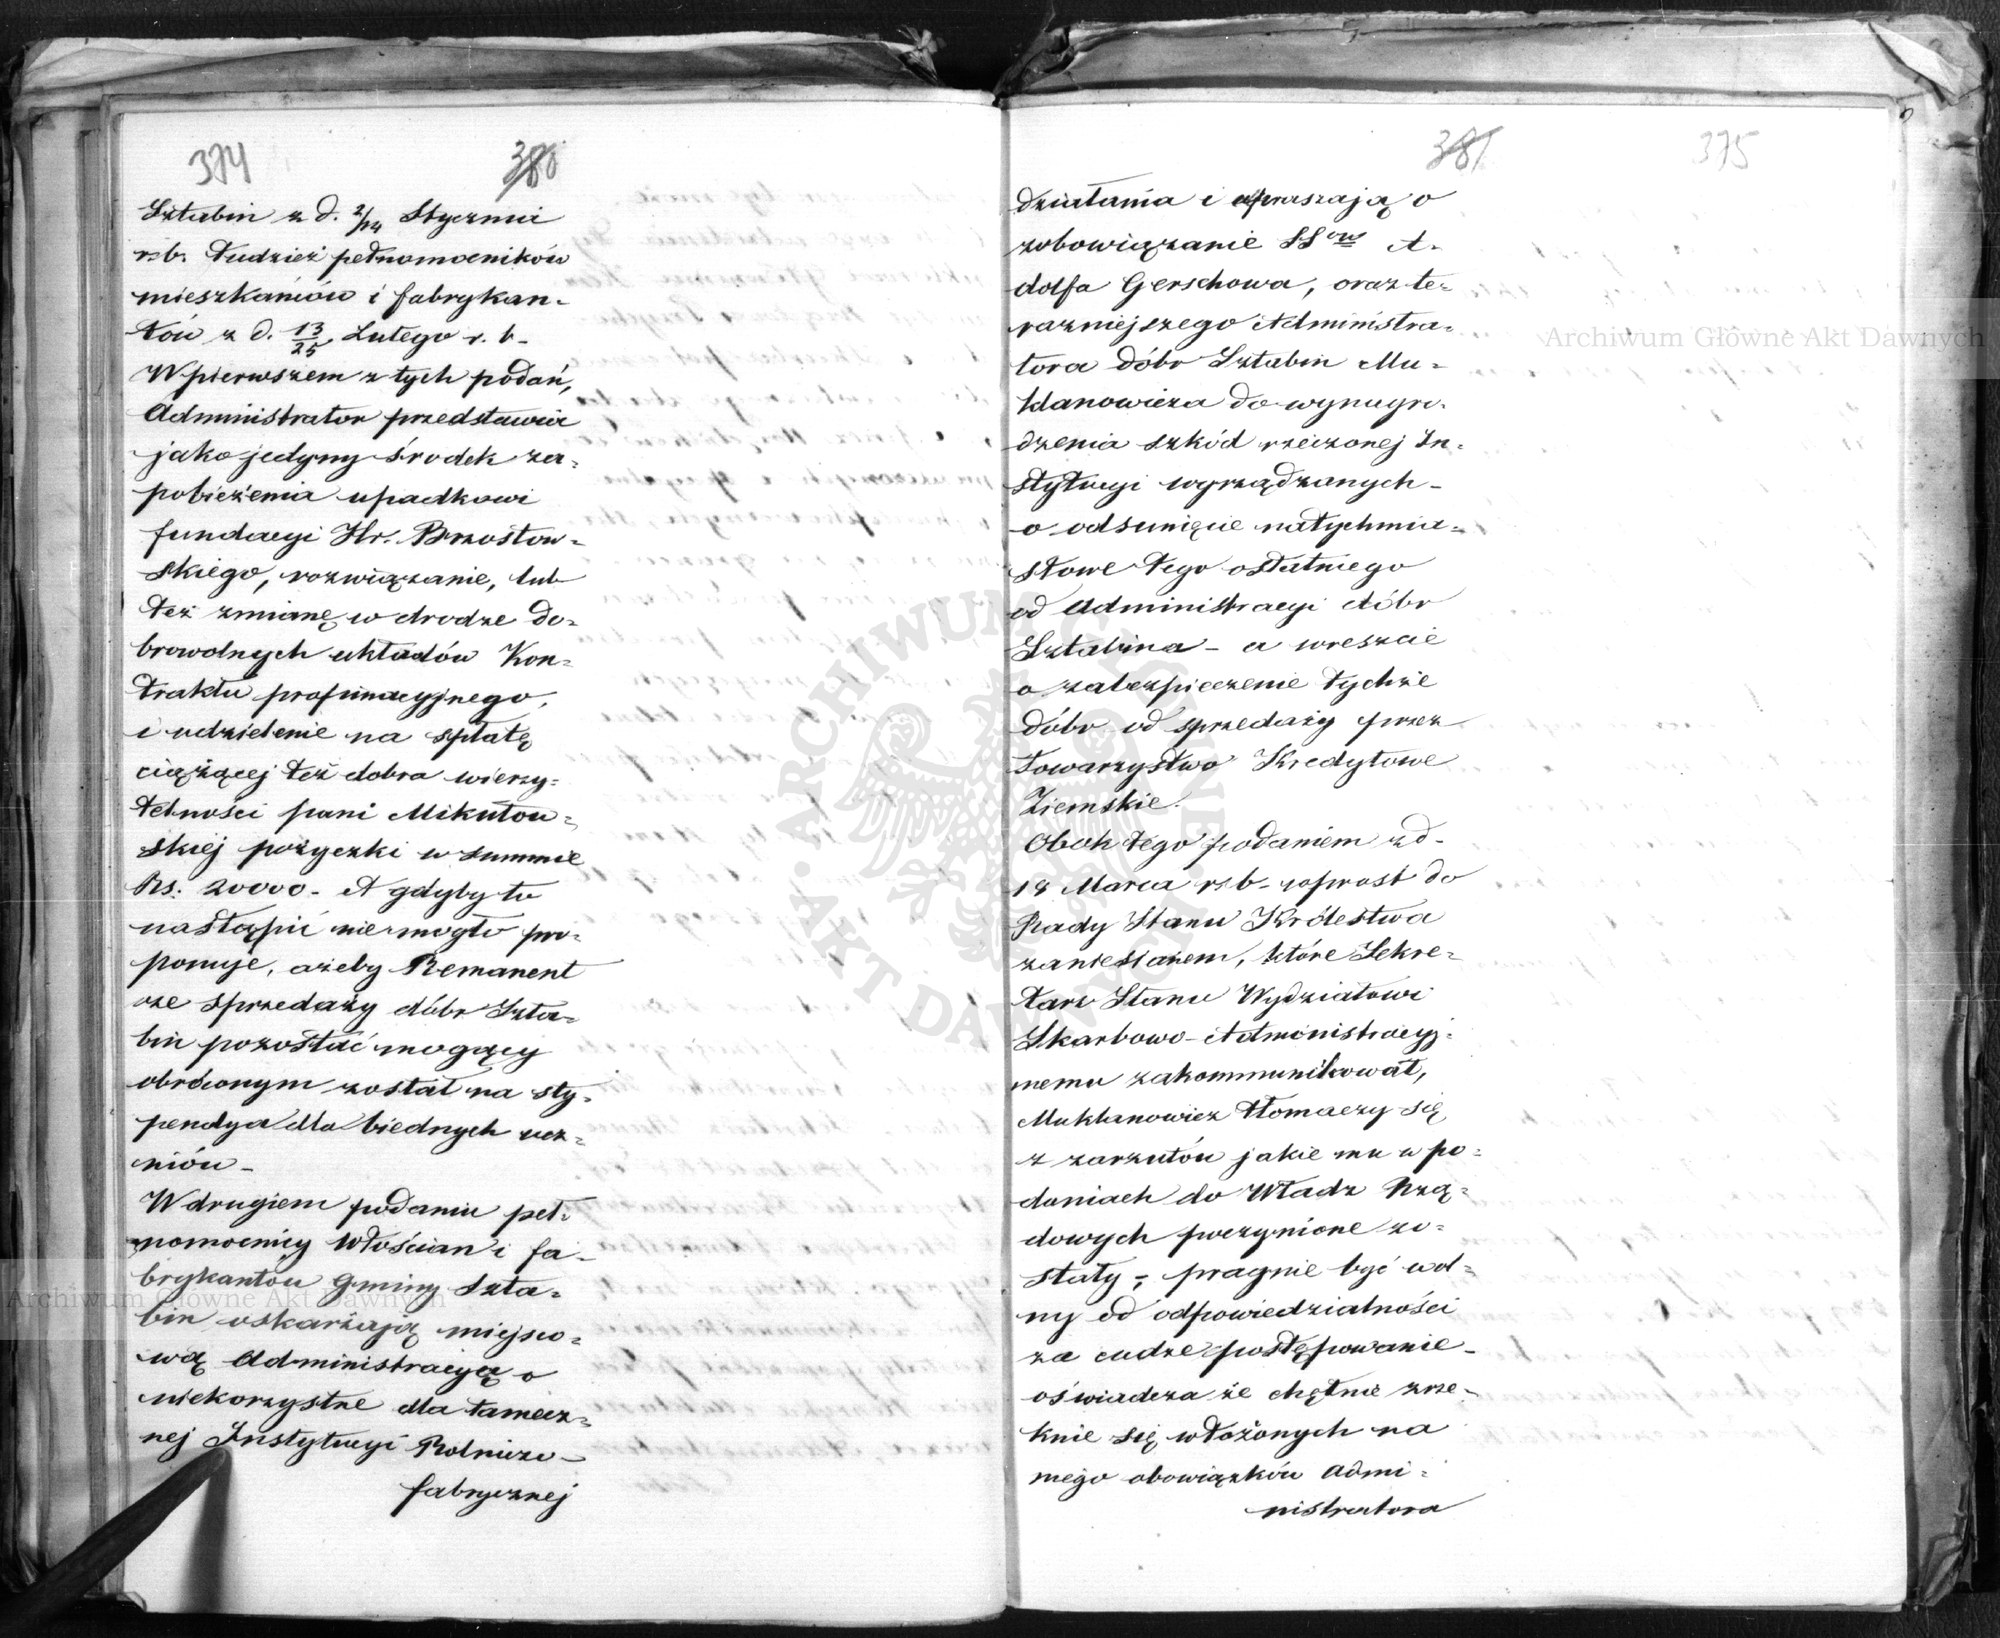 374
380
Sztabin z d. 2/14 Stycznia
r.b. tudzież pełnomocników
mieszkańców i fabrykan=
tów z d. 13/25 Lutego r. b-
W pierwszem z tych podań,
Administrator przedstawia
jako jedyny środek za=
pobieżenia upadkowi
fundacyi Hr. Brzostow=
skiego, rozwiązanie, lub
też zmianę w drodze do=
browolnych układów Kon=
traktu propinacyjnego,
i udzielenie na spłatę
ciążącej też dobra wierzy=
telności pani Mikułow=
skiej pożyczki w summie
Rs. 20000 - A gdyby to
nastąpić nie mogło pro=
ponuje, ażeby Remanent
ze sprzedaży dóbr Szta=
bin pozostać mogący
obróconym został na sty=
pendya dla biednych ucz=
niów -
W drugiem podaniu peł=
nomocnicy Włościan i fa=
brykantów Gminy Szta=
bin oskarżają miejsco=
wą Administracyą o
niekorzystne dla tamecz=
nej Instytucyi Rolniczo-
fabrycznej
381
375
działania i upraszają o
zobowiązanie SSów A=
dolfa Gerschowa, oraz te=
raźniejszego Administra=
tora dóbr Sztabin Mu=
kłanowicza do wynagro=
dzenia szkód rzeczonej In=
stytucyi wyrządzanych -
o odsunięcie natychmia=
stowe tego ostatniego
od Administracyi dóbr
Sztabina - a wreszcie
o zabezpieczenie tychże
dóbr od sprzedaży przez
Towarzystwo Kredytowe
Ziemskie.
Obok tego podaniem z d-
18 Marca r.b- wprost do
Rady Stanu Królestwa
zaniesionem, które Sekre=
tarz Stanu Wydziałowi
Skarbowo-Administracyj=
nemu zakommunikował,
Mukłanowicz tłomaczy się
z zarzutów jakie mu w po=
daniach do Władz Rzą=
dowych poczynione zo=
stały; pragnie być wol=
ny od odpowiedzialności
za cudze postępowanie -
oświadcza że chętnie zrze=
knie się włożonych na
niego obowiązków Admi=
nistratora
Archiwum Główne Akt Dawnych
Archiwum Główne Akt Dawnych
ARCHIWUM GŁÓWNE AKT DAWNYCH